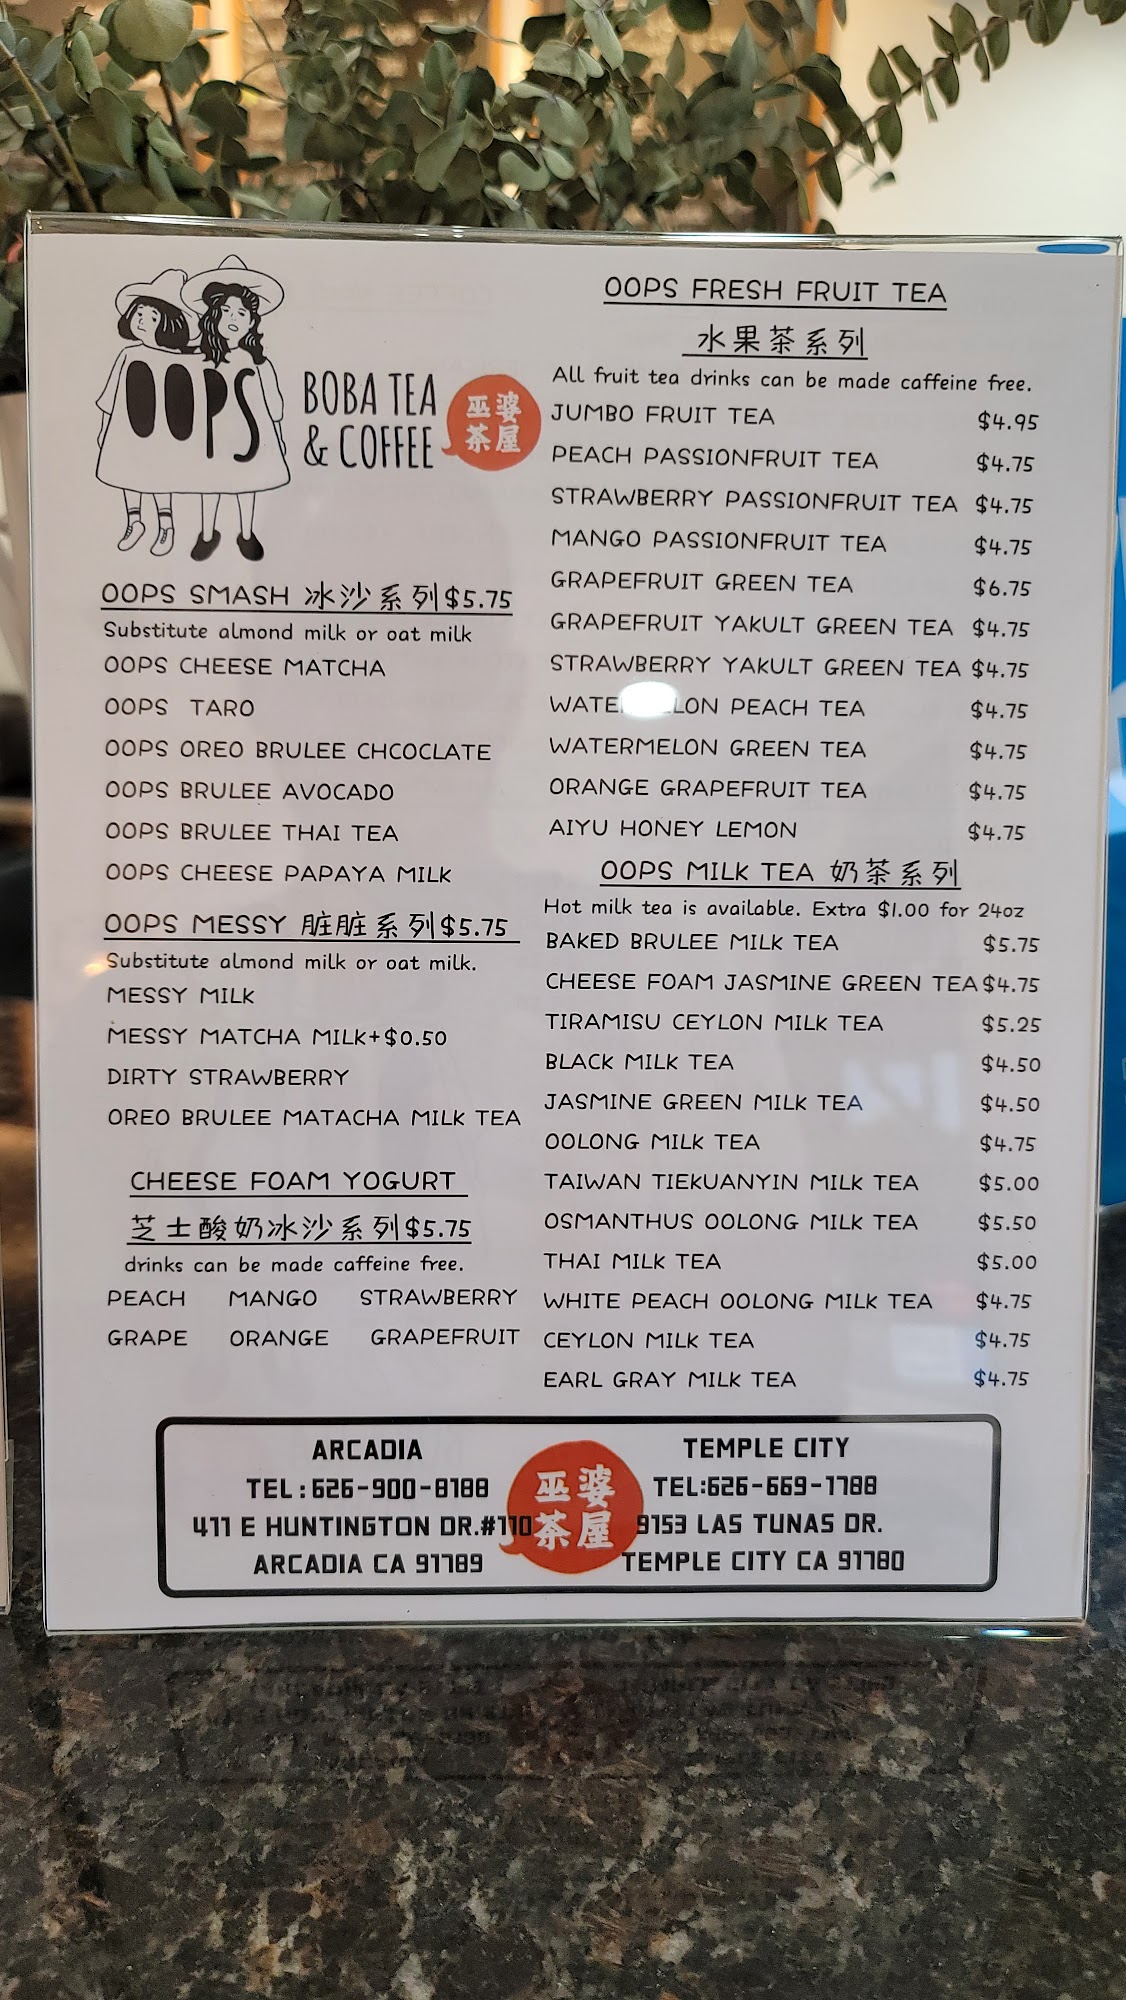 OOPS
BOBA TEA
& COFFEE
巫婆
茶屋
OOPS SMASH 冰沙系列$5.75
Substitute almond milk or oat milk
OOPS CHEESE MATCHA
OOPS TARO
OOPS OREO BRULEE CHCOCLATE
OOPS BRULEE AVOCADO
OOPS BRULEE THAI TEA
OOPS CHEESE PAPAYA MILK
OOPS MESSY 脏脏系列$5.75
Substitute almond milk or oat milk.
MESSY MILK
MESSY MATCHA MILK+$0.50
DIRTY STRAWBERRY
OREO BRULEE MATACHA MILK TEA
CHEESE FOAM YOGURT
芝士酸奶冰沙系列$5.75
drinks can be made caffeine free.
PEACH MANGO STRAWBERRY
GRAPE ORANGE GRAPEFRUIT
OOPS FRESH FRUIT TEA
水果茶系列
All fruit tea drinks can be made caffeine free.
JUMBO FRUIT TEA $4.95
PEACH PASSIONFRUIT TEA $4.75
STRAWBERRY PASSIONFRUIT TEA $4.75
MANGO PASSIONFRUIT TEA $4.75
GRAPEFRUIT GREEN TEA $6.75
GRAPEFRUIT YAKULT GREEN TEA $4.75
STRAWBERRY YAKULT GREEN TEA $4.75
WATERMELON PEACH TEA $4.75
WATERMELON GREEN TEA $4.75
ORANGE GRAPEFRUIT TEA $4.75
AIYU HONEY LEMON $4.75
OOPS MILK TEA 奶茶系列
Hot milk tea is available. Extra $1.00 for 24oz
BAKED BRULEE MILK TEA $5.75
CHEESE FOAM JASMINE GREEN TEA $4.75
TIRAMISU CEYLON MILK TEA $5.25
BLACK MILK TEA $4.50
JASMINE GREEN MILK TEA $4.50
OOLONG MILK TEA $4.75
TAIWAN TIEKUANYIN MILK TEA $5.00
OSMANTHUS OOLONG MILK TEA $5.50
THAI MILK TEA $5.00
WHITE PEACH OOLONG MILK TEA $4.75
CEYLON MILK TEA $4.75
EARL GRAY MILK TEA $4.75
ARCADIA
TEL:626-900-8188
411 E HUNTINGTON DR.#110
ARCADIA CA 91789
巫婆
茶屋
TEMPLE CITY
TEL:626-669-1788
9153 LAS TUNAS DR.
TEMPLE CITY CA 91780